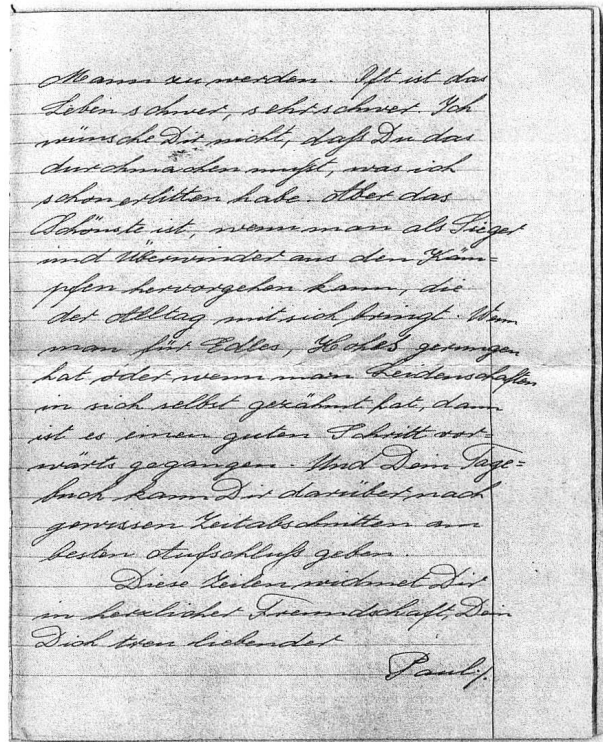 Mann zu werden. Oft ist das
Leben schwer, sehr schwer. Ich
wünsche Dir nicht, daß Du das
durchmachen mußt, was ich
schon erlitten habe. Aber das
Schönste ist, wenn man als Sieger
und Überwinder aus den Käm=
pfen hervorgehen kann, die
der Alltag mit sich bringt. Wenn
man für Edles, Hohes gerungen
hat oder wenn man Leidenschaften
in sich selbst gezähmt hat, dann
ist es einen guten Schritt vor=
wärts gegangen. Und Dein Tage=
buch kann Dir darüber nach
gewissen Zeitabschnitten am
besten Aufschluß geben.
Diese Zeilen widmet Dir
in herzlicher Freundschaft, Dein
Dich treu liebender
Paul